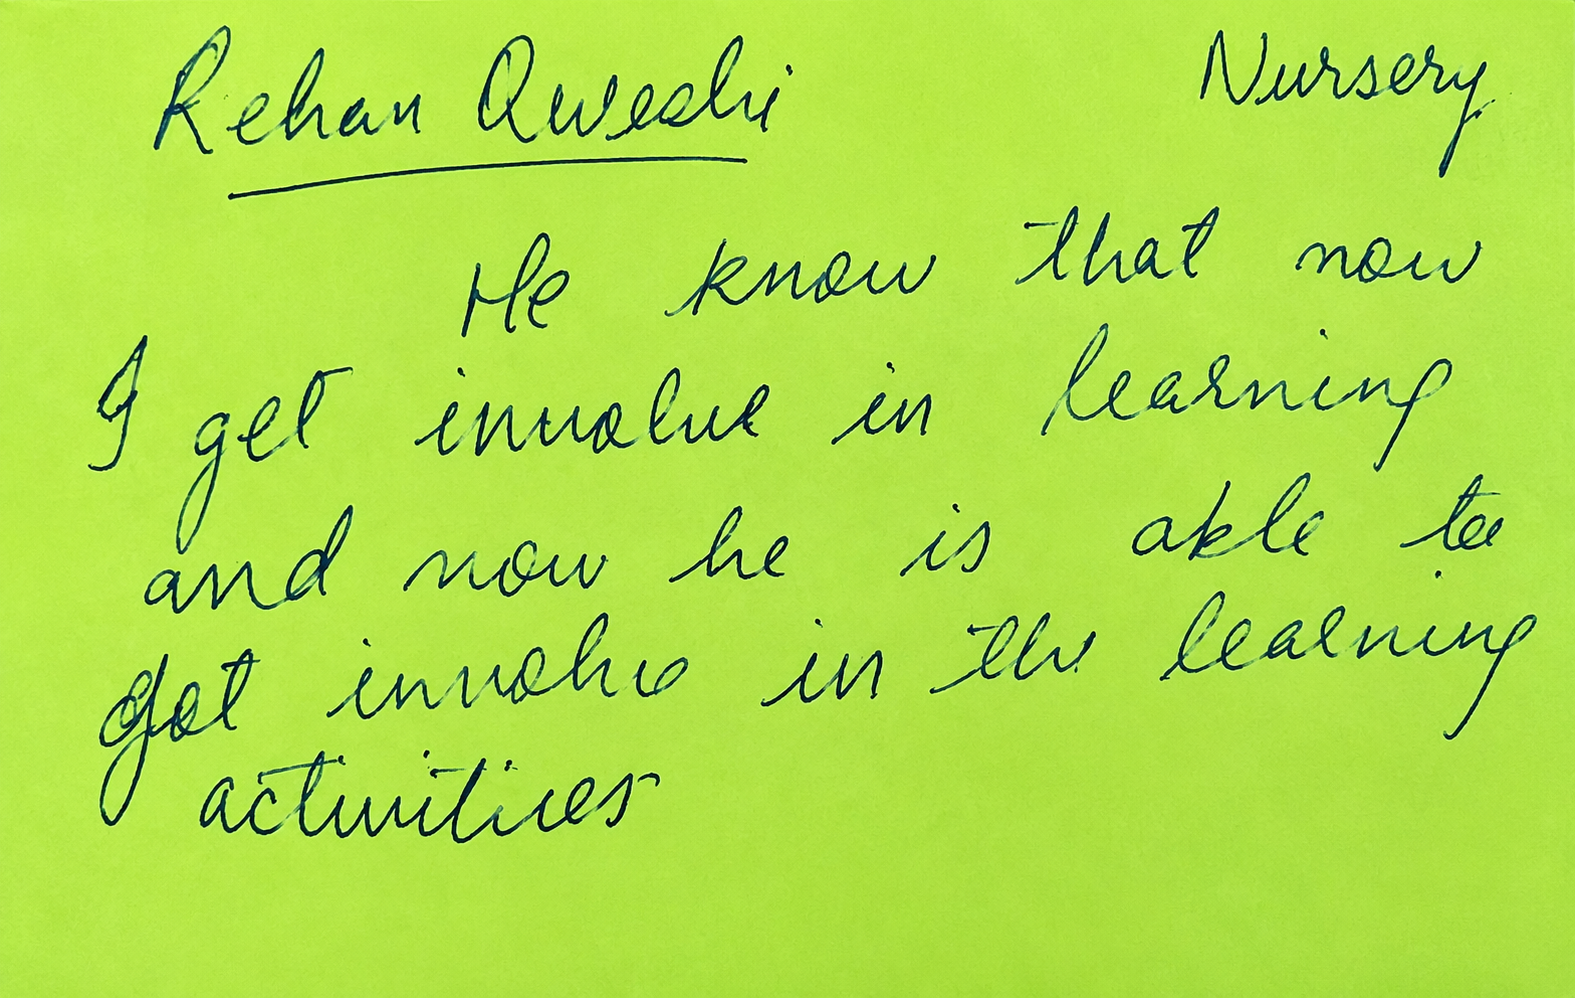 Rehan Qureshi Nursery
He know that now
I get involve in learning
and now he is able to
got involve in the learning
activities